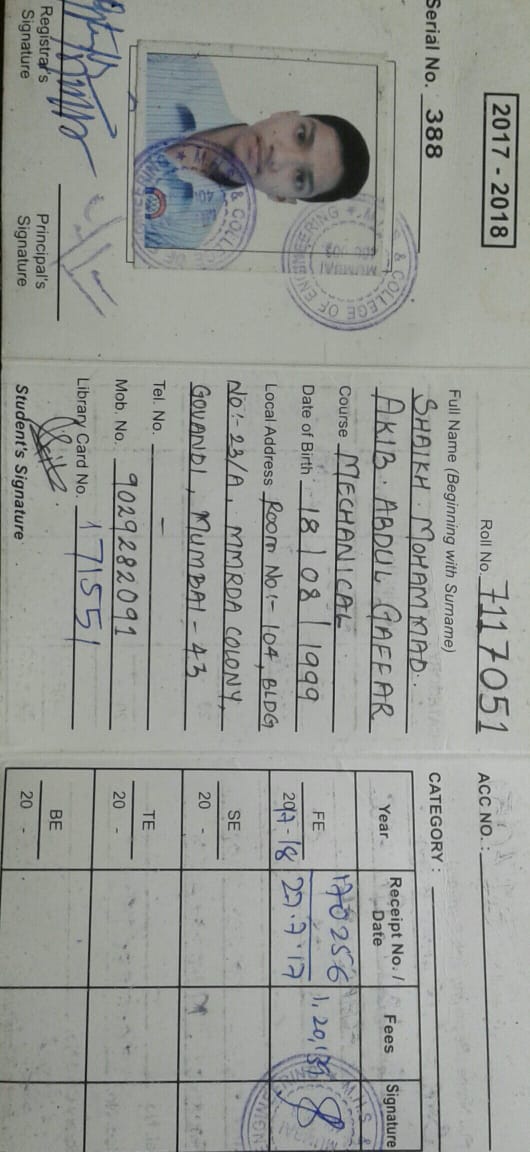 2017 - 2018
Serial No. 388
Registrar's
Signature
Principal's
Signature
Roll No. 7117051
Full Name (Beginning with Surname)
SHAIKH. MOHAMMAD.
AKIB. ABDUL GAFFAR
Course MECHANICAL
Date of Birth 18/08/1999
Local Address Room No:- 104, BLDG
No:- 23/A, MMRDA COLONY,
GOVANDI, MUMBAI - 43
Tel. No. -
Mob. No. 9029282091
Library Card No. 171551
Student's Signature
ACC NO. :
CATEGORY :
Year Receipt No. / Date Fees Signature
FE 170256
2017-18 27.7.17
SE
20 -
TE
20 -
BE
20 -